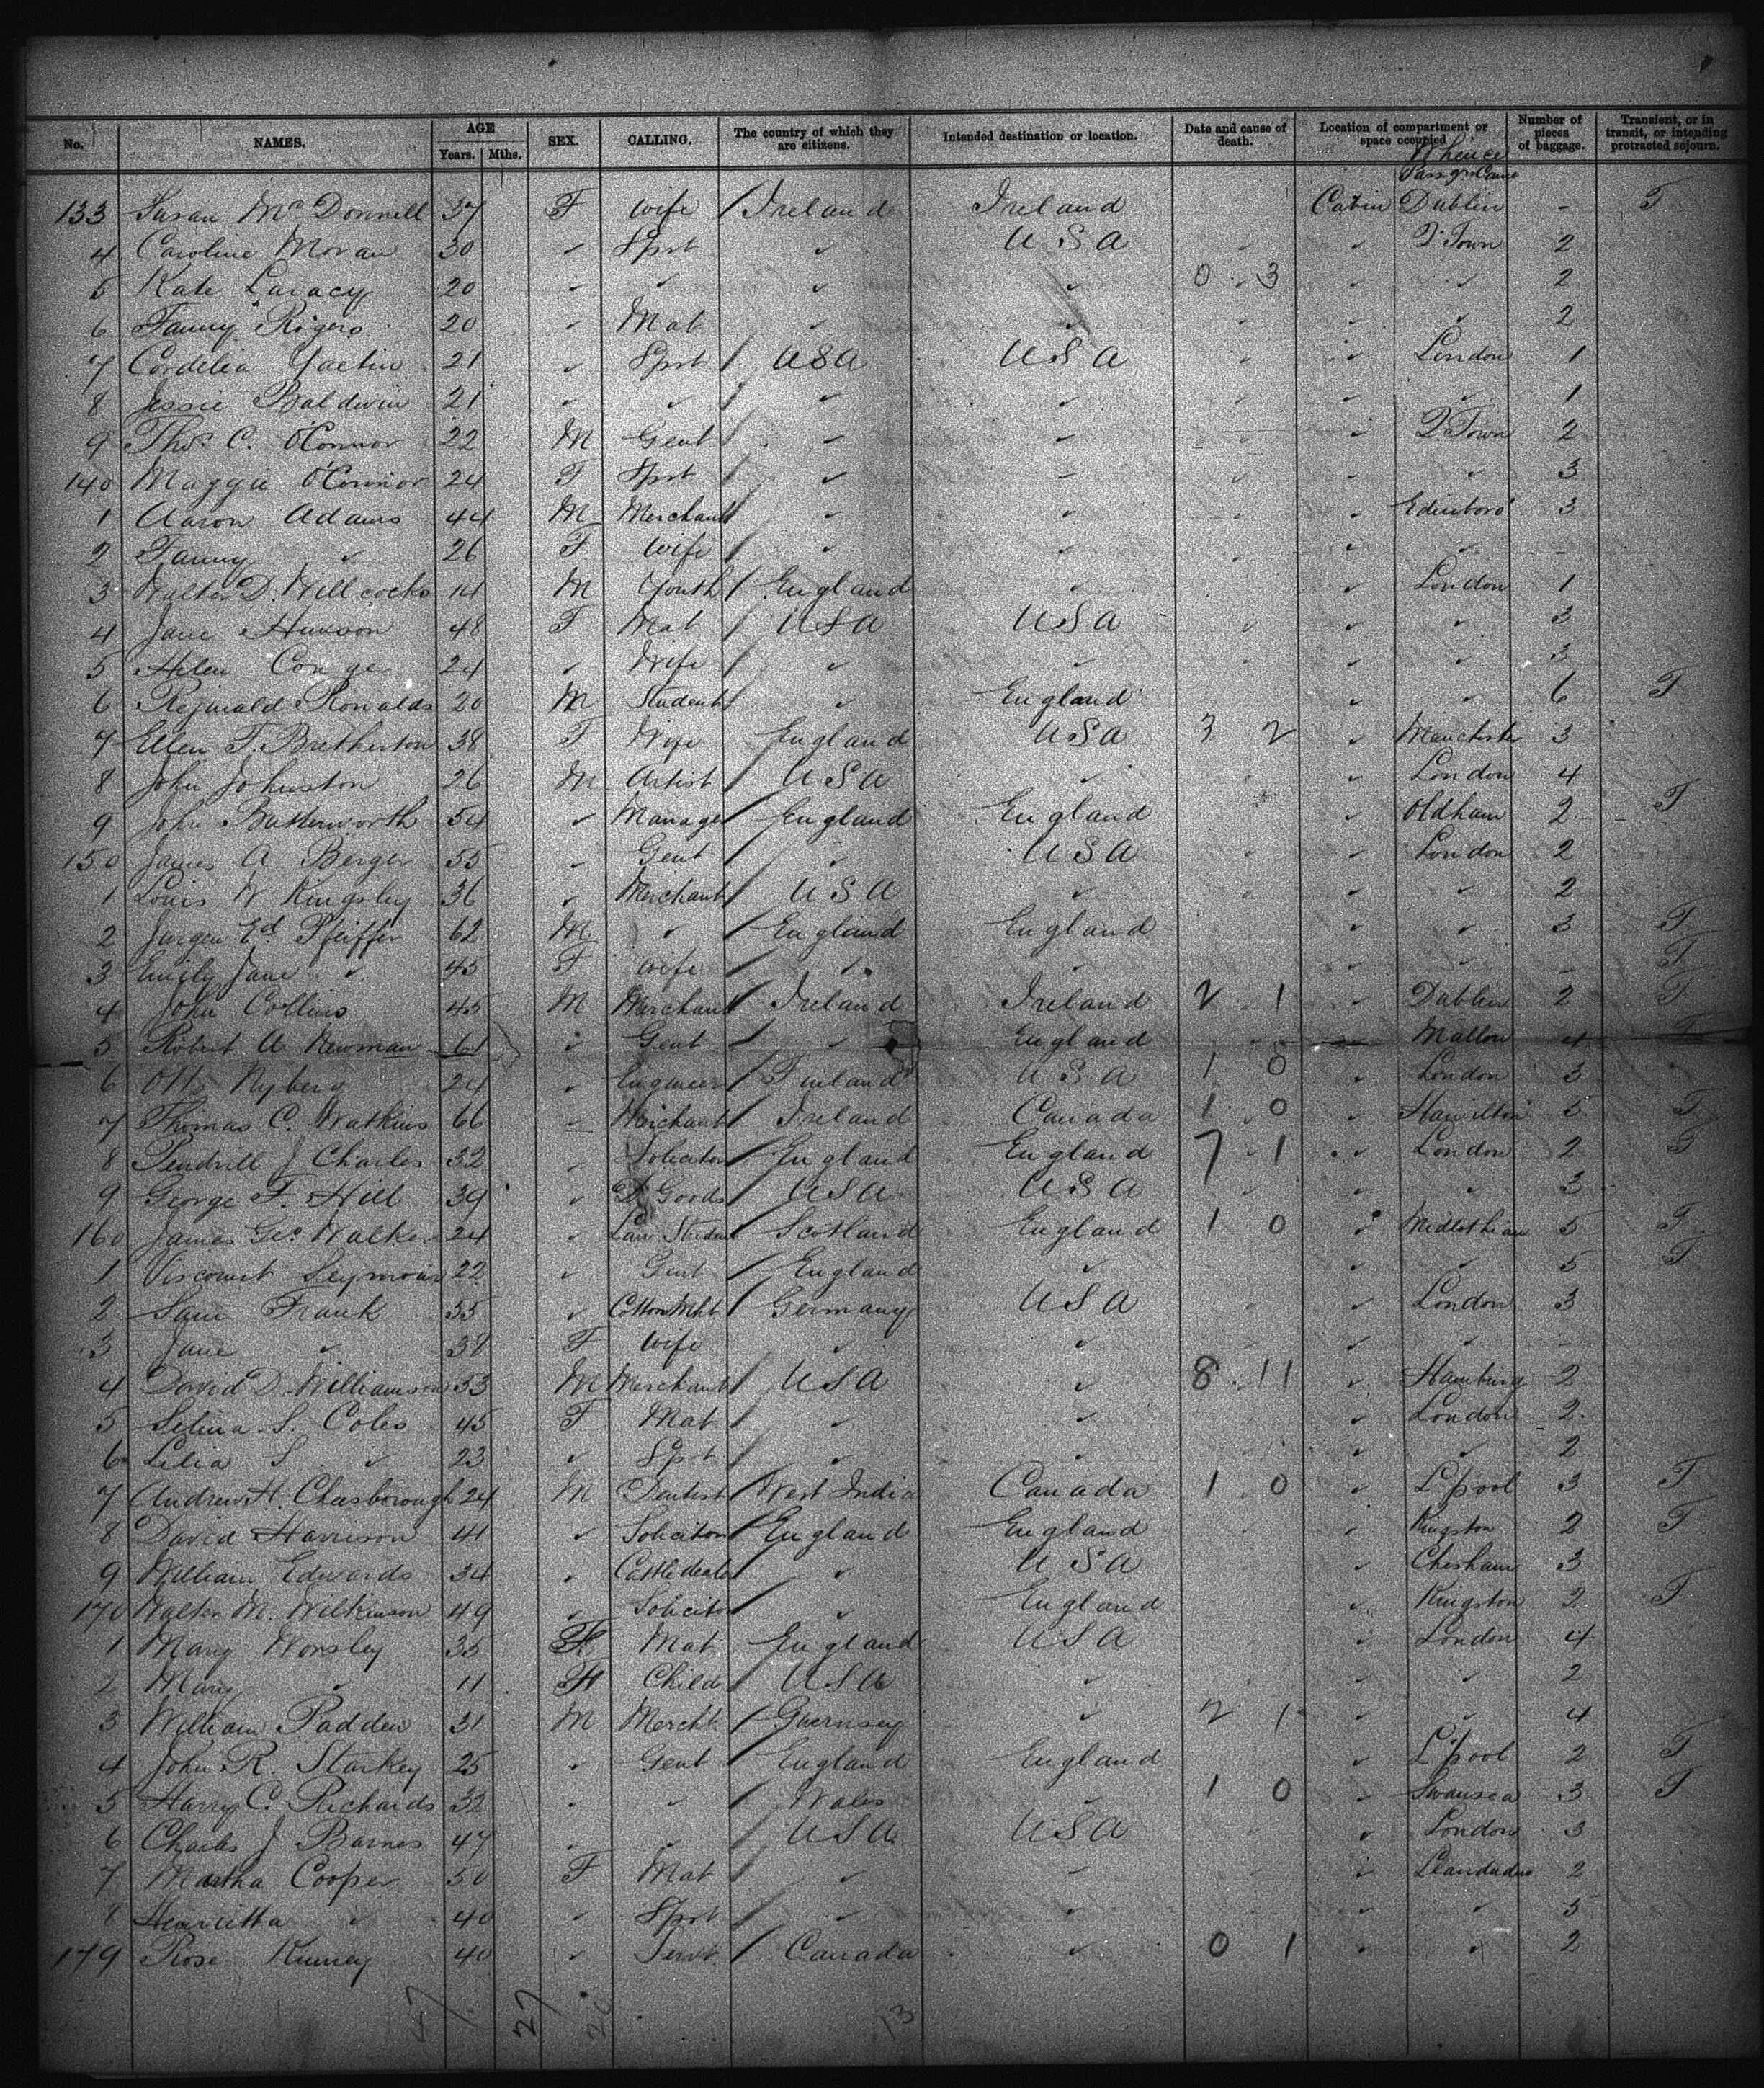 No. NAMES. AGE Years. Mths. SEX. CALLING. The country of which they are citizens. Intended destination or location. Date and cause of death. Location of compartment or space occupied Number of pieces of baggage. Transient, or in transit, or intending protracted sojourn.
Whence
133 Susan McDonnell 37 F Wife / Ireland Ireland Cabin Dublin - T
4 Caroline Moran 30 ✓ Sprt ✓ USA ✓ Q. Town 2
5 Kate Laracy 20 ✓ ✓ ✓ ✓ 0 3 ✓ ✓ 2
6 Fanny Rogers 20 ✓ Mat ✓ ✓ ✓ ✓ 2
7 Cordelia 21 ✓ Sprt / USA USA ✓ London 1
8 Jessie Baldwin 21 ✓ ✓ / ✓ ✓ ✓ ✓ 1
9 Thos C. O'Connor 22 M Gent / ✓ ✓ ✓ Q. Town 2
140 Maggie O'Connor 24 F Sprt / ✓ ✓ ✓ ✓ 3
1 Aaron Adams 44 M Merchant / ✓ ✓ ✓ Edinboro' 3
2 Fanny ✓ 26 F Wife / ✓ ✓ ✓ ✓ -
3 Walter D. Willcocks 14 M Youth / England ✓ ✓ London 1
4 Jane 48 F Mat / USA USA ✓ ✓ 3
5 Helen Conger 24 ✓ Wife / ✓ ✓ ✓ ✓ 3
6 Reginald Ronalds 20 M Student / ✓ England ✓ ✓ 6 T
7 Ellen T. Bretherton 38 F Wife England USA 3 2 ✓ Manchester 3
8 John Johnston 26 M Artist / USA ✓ ✓ London 4
9 John Butterworth 54 ✓ Manager / England England ✓ Oldham 2 T
150 James A Berger 55 ✓ Gent / ✓ USA ✓ London 2
1 Louis W Kingsley 36 ✓ Merchant / USA ✓ ✓ ✓ 2
2 Jurgen Ed. Pfeiffer 62 M ✓ / England England ✓ ✓ 3 T
3 Emily Jane ✓ 45 F Wife / ✓ ✓ ✓ ✓ - T
4 John Collins 45 M Merchant / Ireland Ireland 2 1 ✓ Dublin 2 T
5 Robert A Newman 61 ✓ Gent / ✓ England ✓ Mallow 4 T
6 Otto Nyberg 24 ✓ Engineer / Finland USA 1 0 ✓ London 3
7 Thomas C. Watkins 66 ✓ Merchant / Ireland Canada 1 0 ✓ Hamilton 5 T
8 Pendrill J Charles 32 ✓ Solicitor / England England 7 1 ✓ London 2 T
9 George F. Hill 39 ✓ D Goods / USA USA ✓ ✓ 3
160 James Geo. Walker 24 ✓ Law Student / Scotland England 1 0 ✓ Midlothian 5 T
1 Viscount Seymour 22 ✓ Gent / England ✓ ✓ ✓ 5 T
2 Sam Frank 35 ✓ Cotton Mcht / Germany USA ✓ London 3
3 Jane ✓ 38 F Wife ✓ ✓ ✓ ✓ -
4 David D. Williamson 33 M Merchant / USA ✓ 8 11 ✓ Hamburg 2
5 Selina S. Coles 45 F Mat / ✓ ✓ ✓ London 2
6 Lelia S ✓ 23 ✓ Sprt / ✓ ✓ ✓ ✓ 2
7 Andrew H. Cheesborough 24 M Dentist / West India Canada 1 0 ✓ L'pool 3 T
8 David Harrison 41 ✓ Solicitor / England England ✓ Kingston 2 T
9 William Edwards 34 ✓ Cattle dealer / ✓ USA ✓ Chesham 3
170 Walter M. Wilkinson 49 ✓ Solicitor / ✓ England ✓ Kingston 2 T
1 Mary Worsley 35 F Mat England USA ✓ London 4
2 Mary ✓ 11 F Child / USA ✓ ✓ ✓ 2
3 William Padden 31 M Mercht / Guernsey ✓ 2 1 ✓ ✓ 4
4 John R. Starkey 25 ✓ Gent / England England ✓ L'pool 2 T
5 Harry C. Richards 32 ✓ ✓ / Wales ✓ 1 0 ✓ Swansea 3 T
6 Charles J Barnes 47 ✓ ✓ / USA USA ✓ London 3
7 Martha Cooper 50 F Mat / ✓ ✓ ✓ Llandudno 2
8 Henrietta ✓ 40 ✓ Sprt / ✓ ✓ ✓ ✓ 5
179 Rose 40 ✓ Servt / Canada ✓ 0 1 ✓ ✓ 2
27
13